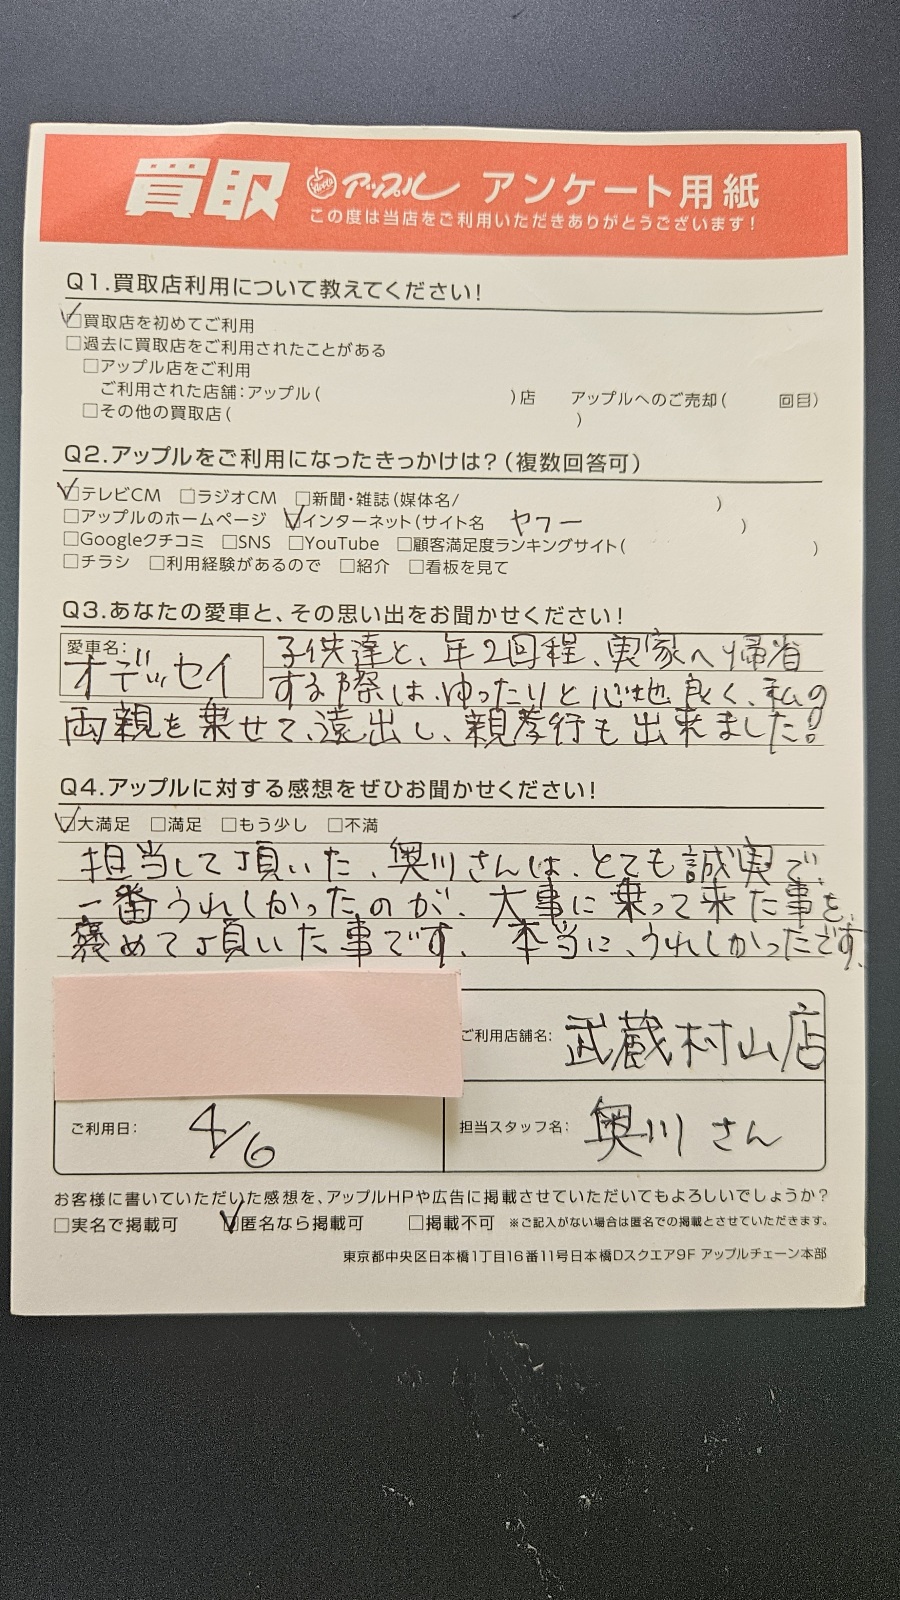 買取 アップル アンケート用紙
この度は当店をご利用いただきありがとうございます!
Q1.買取店利用について教えてください!
☑買取店を初めてご利用
□過去に買取店をご利用されたことがある
□アップル店をご利用
ご利用された店舗:アップル( )店 アップルへのご売却( 回目)
□その他の買取店( )
Q2.アップルをご利用になったきっかけは?(複数回答可)
☑テレビCM □ラジオCM □新聞・雑誌(媒体名/ )
□アップルのホームページ ☑インターネット(サイト名 ヤフー )
□Googleクチコミ □SNS □YouTube □顧客満足度ランキングサイト( )
□チラシ □利用経験があるので □紹介 □看板を見て
Q3.あなたの愛車と、その思い出をお聞かせください!
愛車名: オデッセイ
子供達と、年2回程、実家へ帰省
する際は、ゆったりと心地良く、私の
両親を乗せて、遠出し、親孝行も出来ました!
Q4.アップルに対する感想をぜひお聞かせください!
☑大満足 □満足 □もう少し □不満
担当して頂いた、奥川さんは、とても誠実で、
一番うれしかったのが、大事に乗って来た事を、
褒めて頂いた事です、本当に、うれしかったです、
ご利用店舗名: 武蔵村山店
ご利用日: 4/6
担当スタッフ名: 奥川さん
お客様に書いていただいた感想を、アップルHPや広告に掲載させていただいてもよろしいでしょうか?
□実名で掲載可 ☑匿名なら掲載可 □掲載不可 ※ご記入がない場合は匿名での掲載とさせていただきます。
東京都中央区日本橋1丁目16番11号日本橋Dスクエア9F アップルチェーン本部